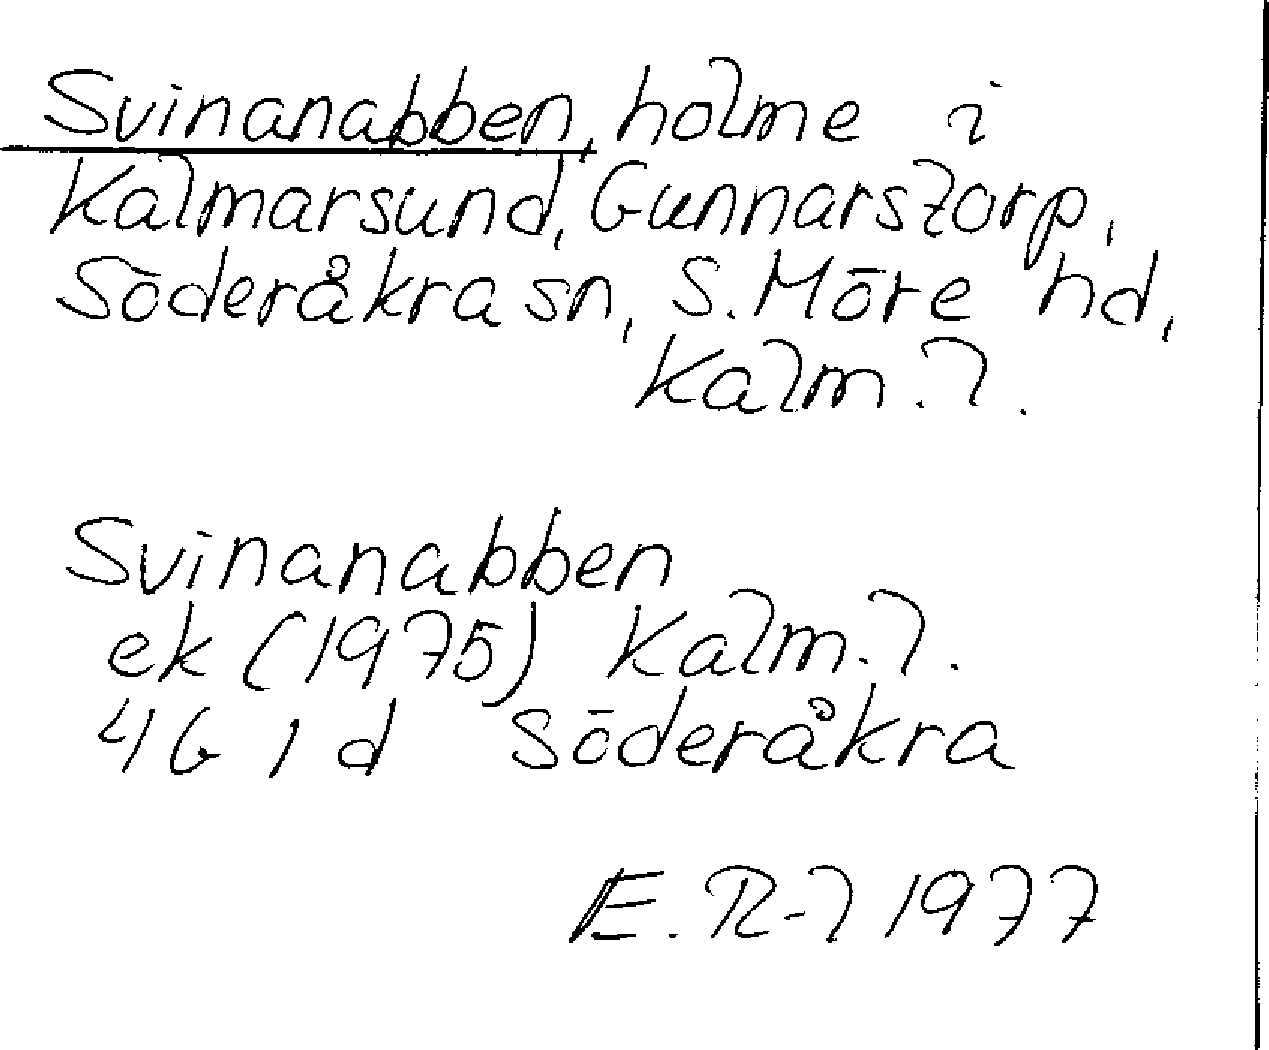 Svinanabben, holme i
Kalmarsund, Gunnarstorp,
Söderåkra sn, S. Möre hd,
Kalm. l.
Svinanabben
ek (1975) Kalm. l.
4G 1d Söderåkra
E. R-l 1977